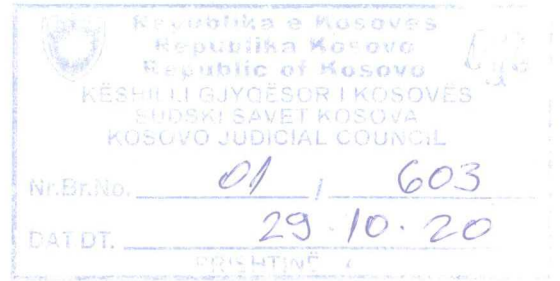 Republika e Kosovës
Republika Kosovo
Republic of Kosovo
KËSHILLI GJYQËSOR I KOSOVËS
SUDSKI SAVET KOSOVA
KOSOVO JUDICIAL COUNCIL
Nr.Br.No. 01 / 603
DAT DT. 29.10.20
PRISHTINË